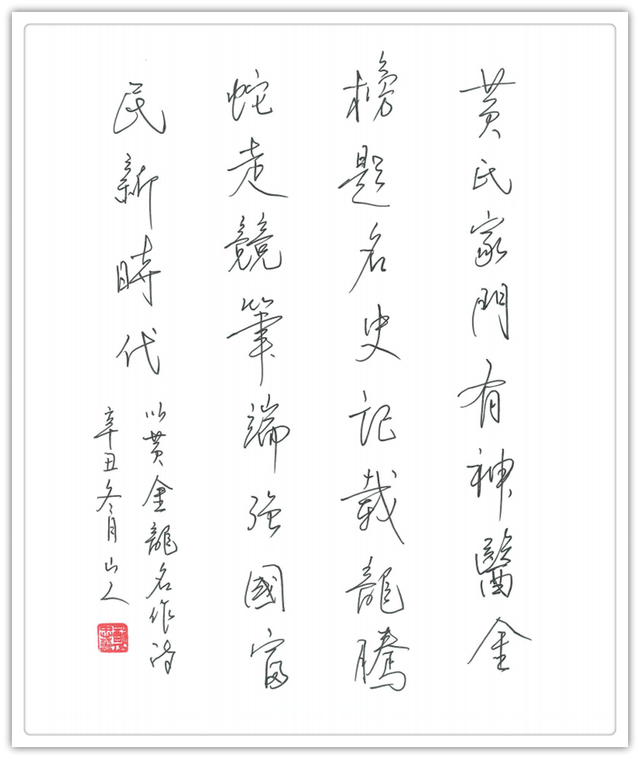 黄氏家門有神醫金
榜題名史記載龍騰
蛇走競筆端强國富
民新時代
以黄金龍名作詩
辛丑冬月山人